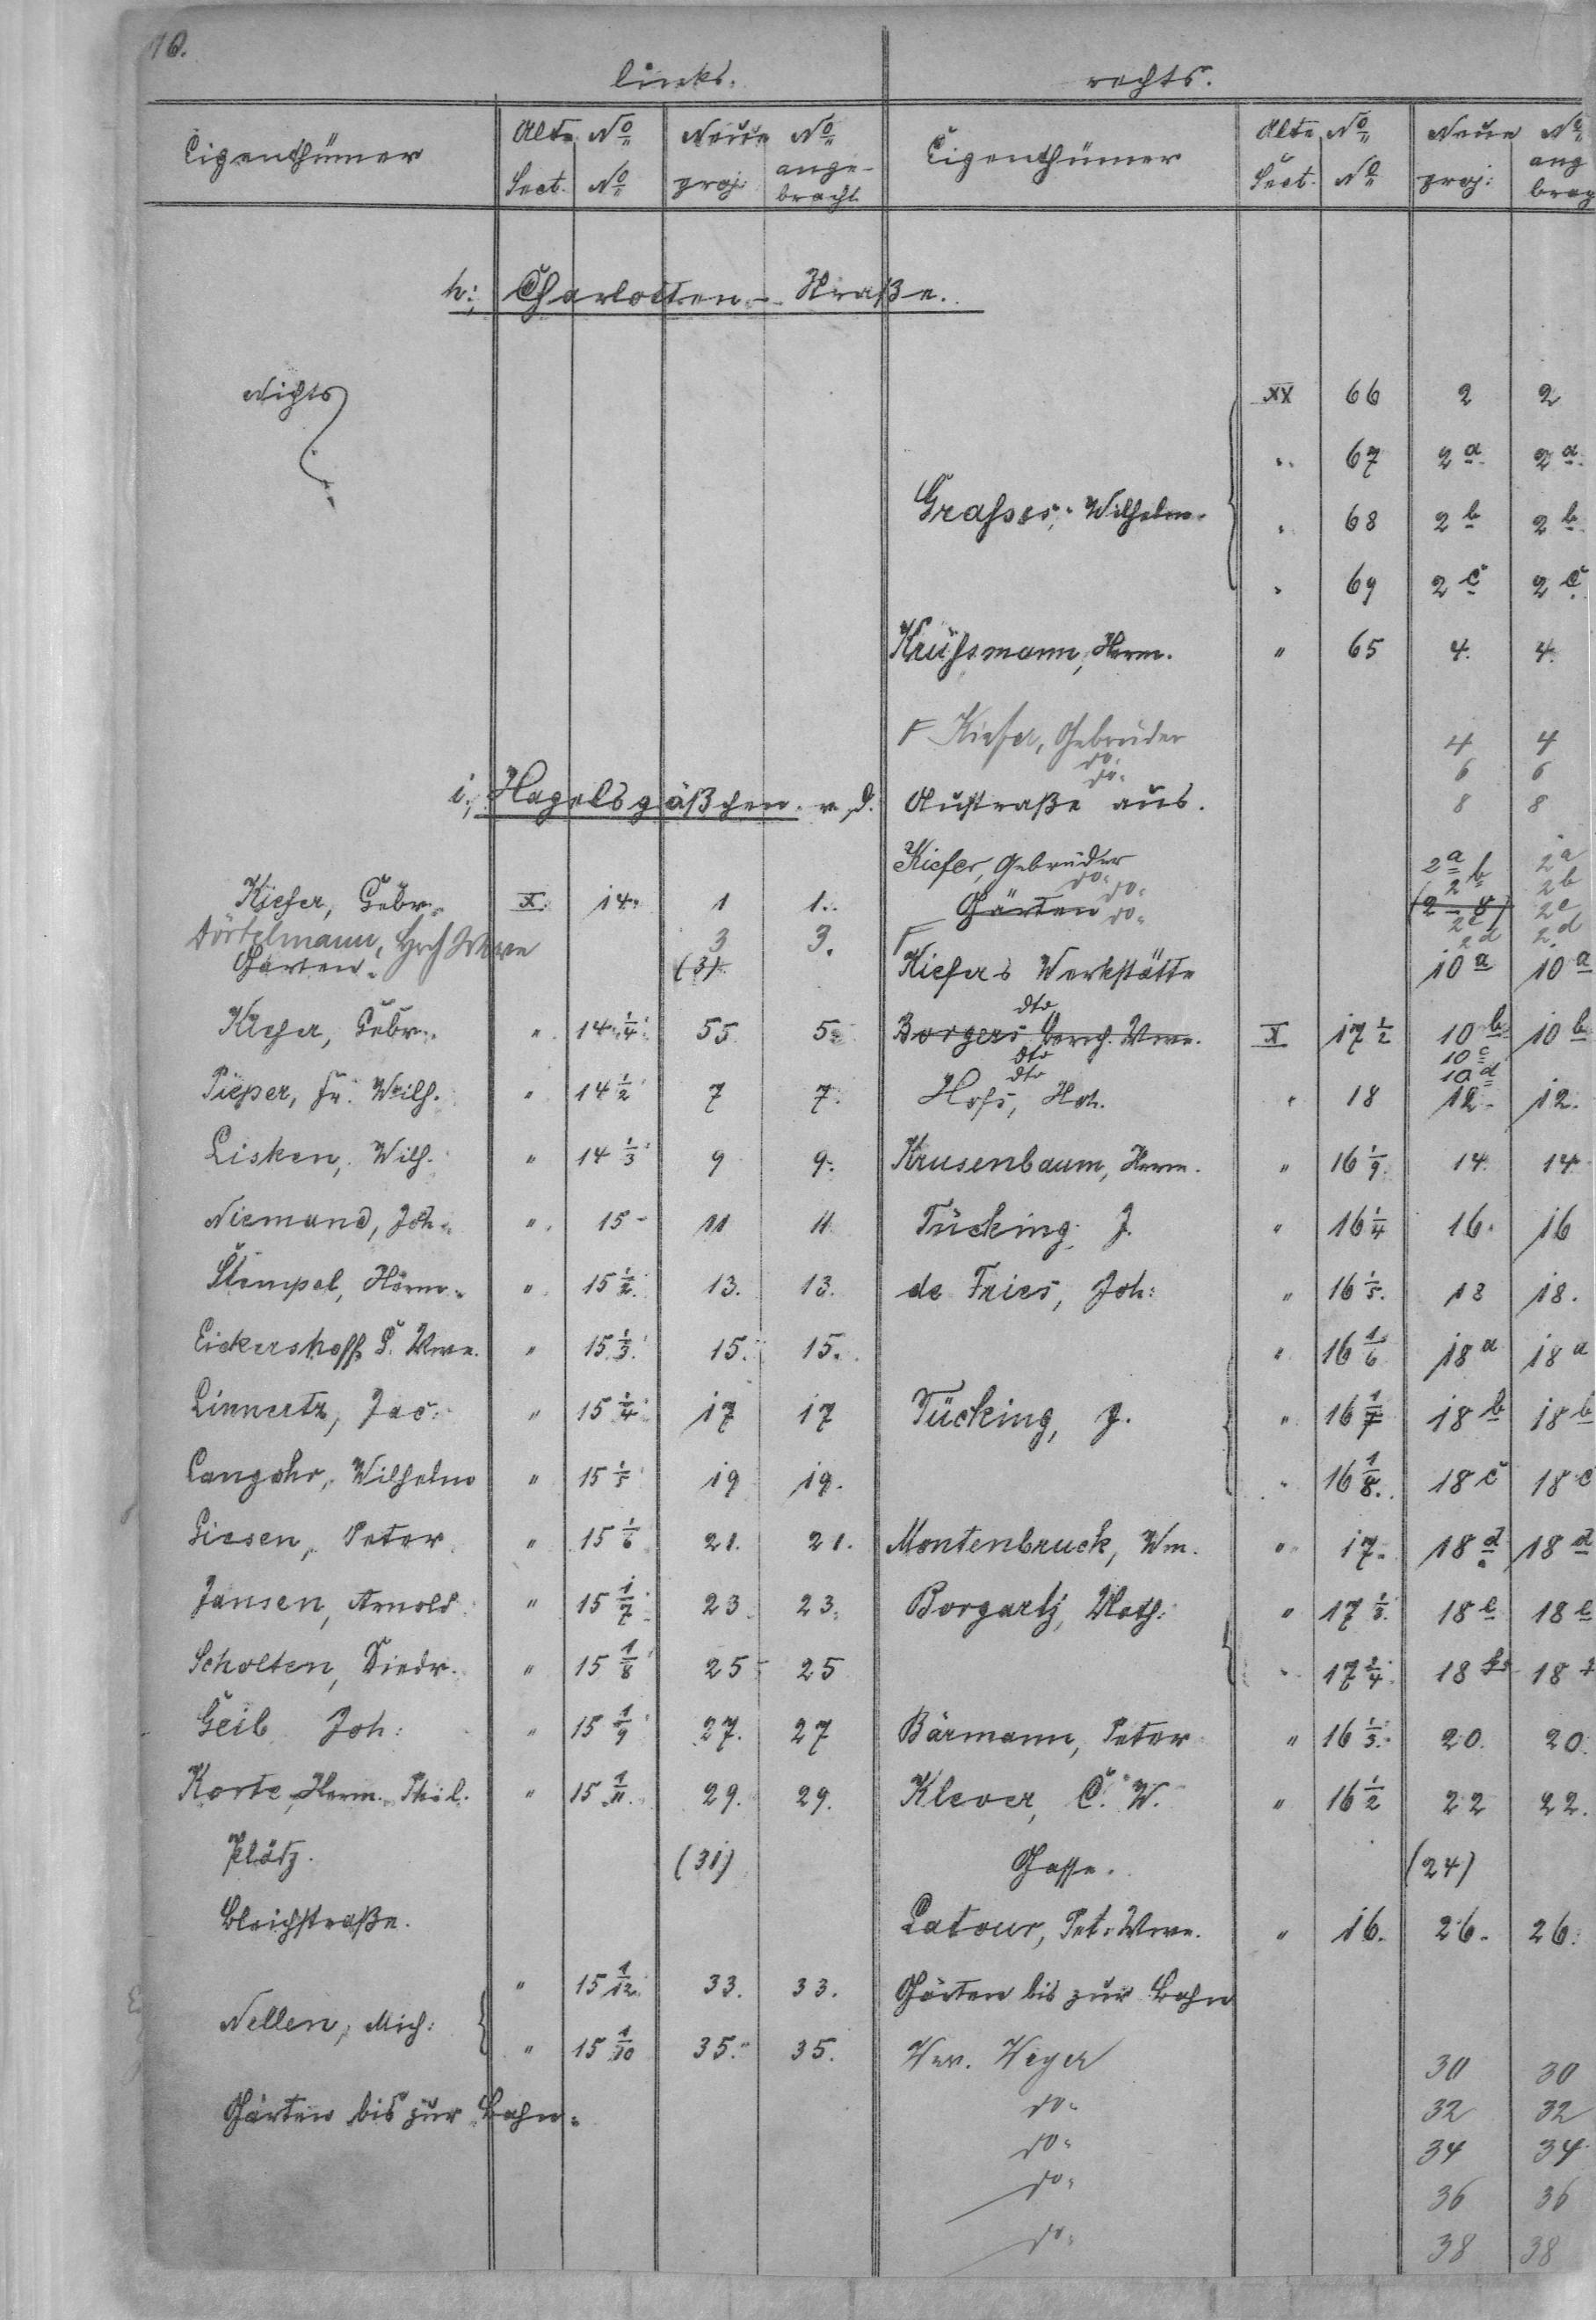 10.
links. rechts.
Eigenthümer Alte No Neue No Eigenthümer Alte No Neue No
Sect. No proj: ange-bracht Sect. No proj: ang brag
h; Charlotten-Straße.
Nichts XX 66 2 2
" 67 2a 2a
Grafses, Wilhelm " 68 2b 2b
" 69 2c 2c
Krüfsmann, Herm. " 65 4. 4.
Kiefer, Gebrüder 4 4
do. 6 6
do. 8 8
i, Hagelsgäßchen v. d. Austraße aus.
Kiefer, Gebrüder 2a 2a
do. 2b 2b
Kiefer, Gebr. X 14 1 1. Gärten do. (2-8) 2c
Dörtelmann, Hrch Wwe 3 3. do. 2c 2d 2d
Garten. (3) Kiefers Werkstätte 10a 10a
Kiefer, Gebr. " 14 1/4 55 5 Borgers Gerh. Wwe. dto X 17 1/2 10b 10b
dto 10c
dto 10d
Pieper, Fr. Wilh. " 14 1/2 7 7. Hofs, Hch. " 18 12 12.
Lisken, Wilh. " 14 1/3 9 9. Krusenbaum, Herm. " 16 1/9 14 14
Niemand, Joh. " 15 11 11 Tücking, J. " 16 1/4 16. 16
Stempel, Herm. " 15 1/2 13. 13. de Fries, Joh: " 16 1/5. 18 18.
Eickershoff, S. Wwe. " 15 1/3 15. 15. " 16 1/6 18a 18a
Linnertz, Jac: " 15 1/4 17 17 Tücking, J. " 16 1/7 18b 18b
Langohr, Wilhelm " 15 1/5 19 19. " 16 1/8. 18c 18c
Giesen, Peter " 15 1/6 21. 21. Montenbruck, Wm. " 17. 18d 18d
Jansen, Arnold " 15 1/7 23 23. Borgartz, Math: " 17 1/3. 18e 18e
Scholten, Diedr. " 15 1/8 25 25 " 17 2/4. 18f 18f
Geib Joh: " 15 1/9 27. 27 Bärmann, Peter " 16 1/3. 20. 20.
Korte, Herm. Phil. " 15 1/11. 29. 29. Klever, C. W. " 16 1/2 22 22.
Platz. (31) Gasse. (24)
Bleichstraße. Latour, Pet. Wwe. " 16. 26. 26.
" 15 1/12. 33. 33. Gärten bis zur Bahn
Nellen, Mich:
" 15 1/10 35. 35. Ww. Weyer 30 30
Gärten bis zur Bahn. do. 32 32
do. 34 34
do. 36 36
do. 38 38